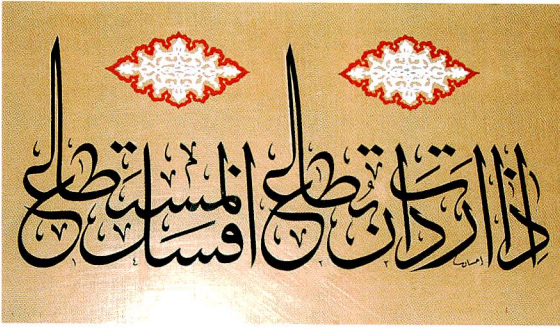 إذا اردت ان تطاع فسل المستطاع